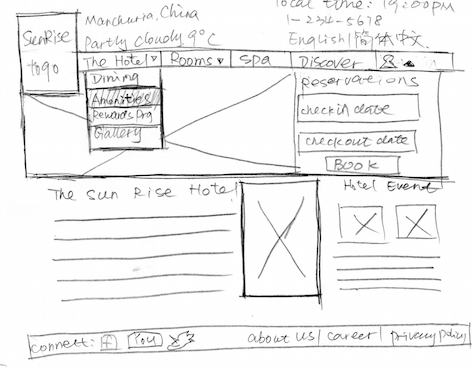 SunRise
togo
Manchuria, China
Partly cloudy 9°C
local time: 19:00PM
1-234-5678
English|简体中文
The Hotel
Rooms
Spa
Discover
Dining
Amenities
Rewards Prg
Gallery
Reservations
checkin date
checkout date
Book
The Sun Rise Hotel
Hotel Event
connect: f You
about us | career | privacy policy